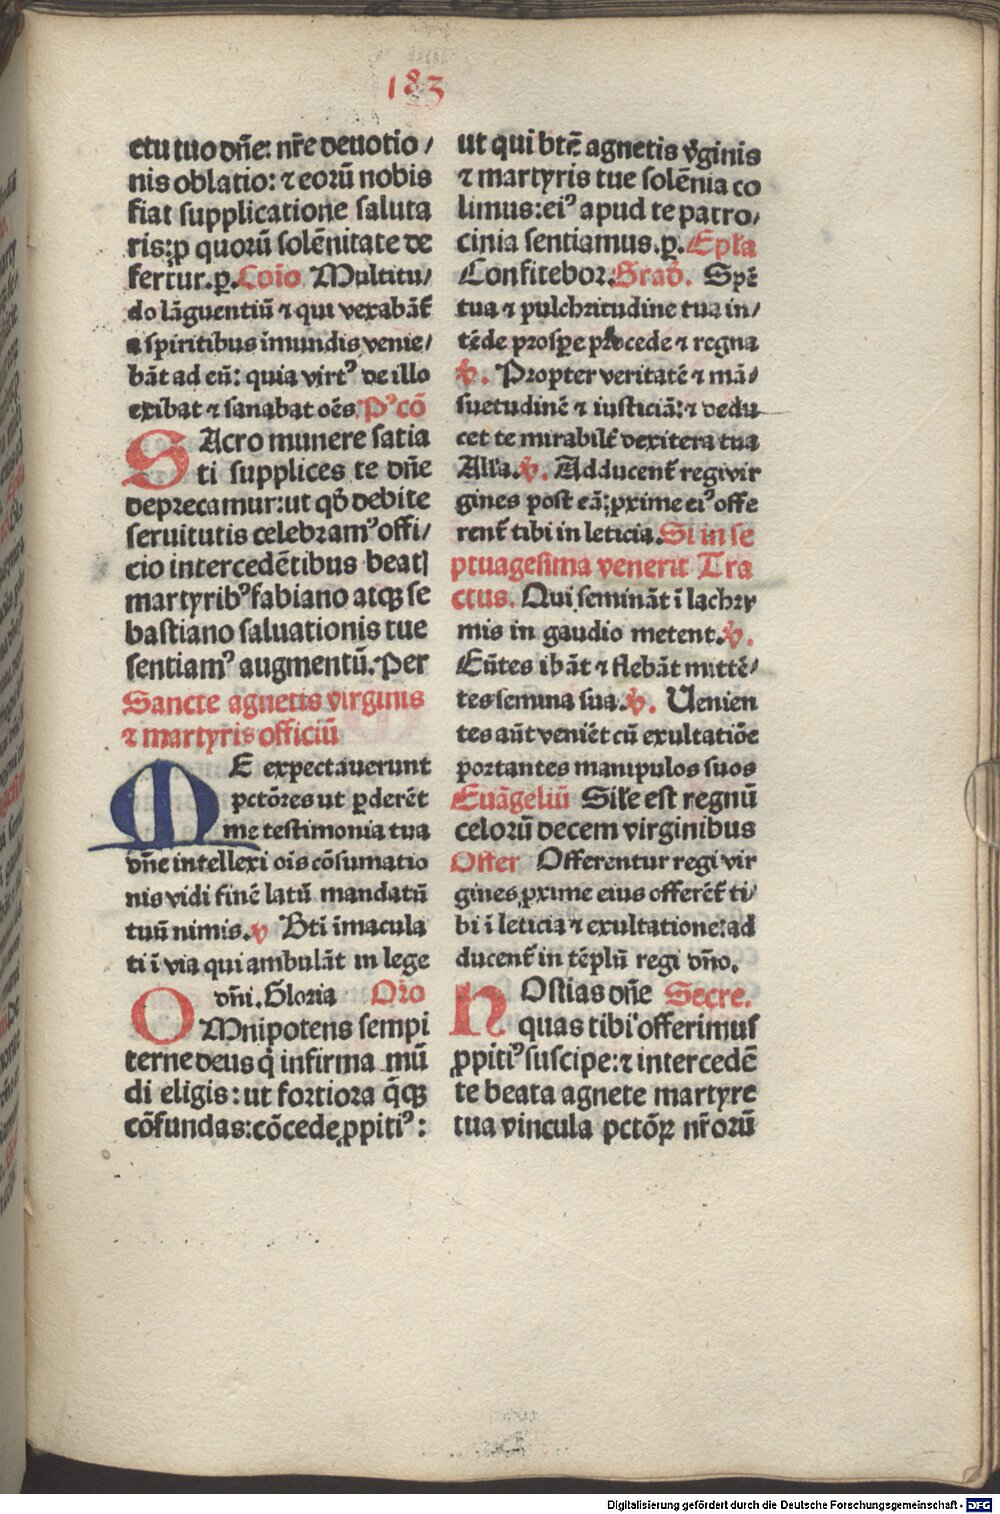 183
ctu tuo dñe: nr̃e deuotio/
nis oblatio: ⁊ eorū nobis
fiat supplicatione saluta
ris: ꝑ quorū solẽnitate de
fertur. ꝑ. Coı̄o Multitu/
do lāguentiū ⁊ qui vexabāt̃
a spiritibus īmundis venie/
bāt ad eū: quia virtꝰ de illo
exibat ⁊ sanabat oẽs Pꝰcō
SAcro munere satia
ti supplices te dñe
deprecamur: ut qd̛ debite
seruitutis celebramꝰ offi/
cio intercedẽtibus beatꝭ
martyribꝰ fabiano atqꝫ se
bastiano saluationis tue
sentiamꝰ augmentū. Per
Sancte agnetis virginis
⁊ martyris officiū
ME expectauerunt
pctōres ut ꝑderẽt
me testimonia tua
dñe intellexi oīs cōsumatio
nis vidi finẽ latū mandatū
tuū nimis. ꝟ Bti īmacula
ti ī via qui ambulāt in lege
dñi. Gloria Orō
OMnipotens sempi
terne deus q̇ infirma mū
di eligis: ut fortiora q̄qꝫ
cōfundas: cōcede ꝓpitiꝰ:
ut qui btẽ agnetis ꝟginis
⁊ martyris tue solẽnia co
limus: eiꝰ apud te patro/
cinia sentiamus. ꝑ. Epl̃a
Confitebor. Grad̛. Spẽ
tua ⁊ pulchritudine tua in/
tẽde prospe procede ⁊ regna
ꝟ. Propter veritatẽ ⁊ mā/
suetudinẽ ⁊ iusticiā: ⁊ dedu
cet te mirabilr̃ dextera tua
All̃a. ꝟ. Adducent̃ regi vir
gines post eā: ꝓxime eiꝰ offe
rent̃ tibi in leticia. Si in se
ptuagesima venerit Tra
ctus. Qui semināt ī lachry
mis in gaudio metent. ꝟ.
Eūtes ibāt ⁊ flebāt mittẽ/
tes semina sua. ꝟ. Uenien
tes aūt veniẽt cū exultatiōe
portantes manipulos suos
Euāgeliū Sil̃e est regnū
celorū decem virginibus
Offer Offerentur regi vir
gines ꝓxime eius offerẽt̃ ti/
bi ī leticia ⁊ exultatione: ad
ducent̃ in tẽplū regi dño.
HOstias dñe Secre.
quas tibi offerimus
ꝓpitiꝰ suscipe: ⁊ intercedẽ
te beata agnete martyre
tua vincula pctōꝝ nr̃orū
Digitalisierung gefördert durch die Deutsche Forschungsgemeinschaft - DFG